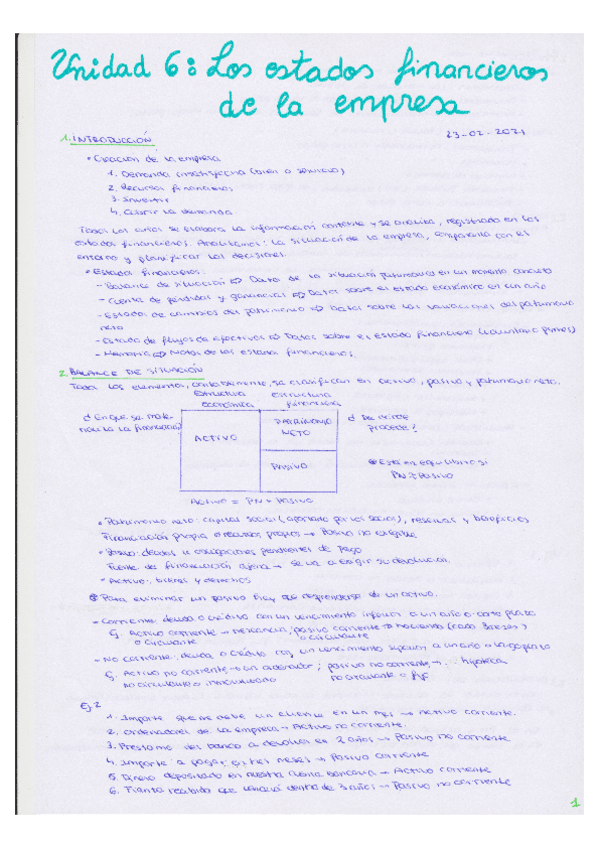 Unidad 6: Los estados financieros
de la empresa
23-02-2021
1. INTRODUCCIÓN
• Creación de la empresa
1. Demanda insatisfecha (bien o servicio)
2. Recursos financieros
3. Invertir
4. Cubrir la demanda
Todos los años se elabora la información contable y se analiza, registrada en los
estados financieros. Analizamos: la situación de la empresa, compararla con el
entorno y planificar las decisiones.
• Estados financieros:
- Balance de situación ⇨ Datos de la situación patrimonial en un momento concreto
- Cuenta de pérdidas y ganancias ⇨ Datos sobre el estado económico en un año
- Estados de cambios del patrimonio ⇨ Datos sobre las variaciones del patrimonio
neto
- Estado de flujos de efectivos ⇨ Datos sobre el estado financiero
- Memoria ⇨ Notas de los estados financieros.
2. BALANCE DE SITUACIÓN
Todos los elementos, contablemente, se clasifican en activo, pasivo y patrimonio neto.
Estructura económica
Estructura financiera
¿En qué se mate-
rializa la financiación?
ACTIVO
PATRIMONIO
NETO
PASIVO
¿De dónde
procede?
Está en equilibrio si
PN = Pasivo
Activo = PN + Pasivo
• Patrimonio neto: capital social (aportado por los socios), reservas y beneficios
Financiación propia o recursos propios → Pasivo no exigible
- Pasivo: deudas u obligaciones pendientes de pago
Fuente de financiación ajena → se va a exigir su devolución.
- Activo: bienes y derechos
Para eliminar un pasivo hay que desprenderse de un activo.
- Corriente: deuda o crédito con un vencimiento inferior a un año o corto plazo
Ej. Activo corriente → mercancía; pasivo corriente → hacienda (cada 3 meses)
o circulante o circulante
- No corriente: deuda o crédito con un vencimiento superior a un año o largo plazo
Ej. Activo no corriente → un ordenador; pasivo no corriente → hipoteca
no circulante o inmovilizado no circulante o fijo
Ej. 2
1. Importe que me debe un cliente en un mes → Activo corriente.
2. Ordenadores de la empresa → Activo no corriente.
3. Préstamo del banco a devolver en 2 años → Pasivo no corriente
4. Importe a pagar en tres meses → Pasivo corriente
5. Dinero depositado en nuestra cuenta bancaria → Activo corriente
6. Fianza recibida que vencerá dentro de 3 años → Pasivo no corriente
1